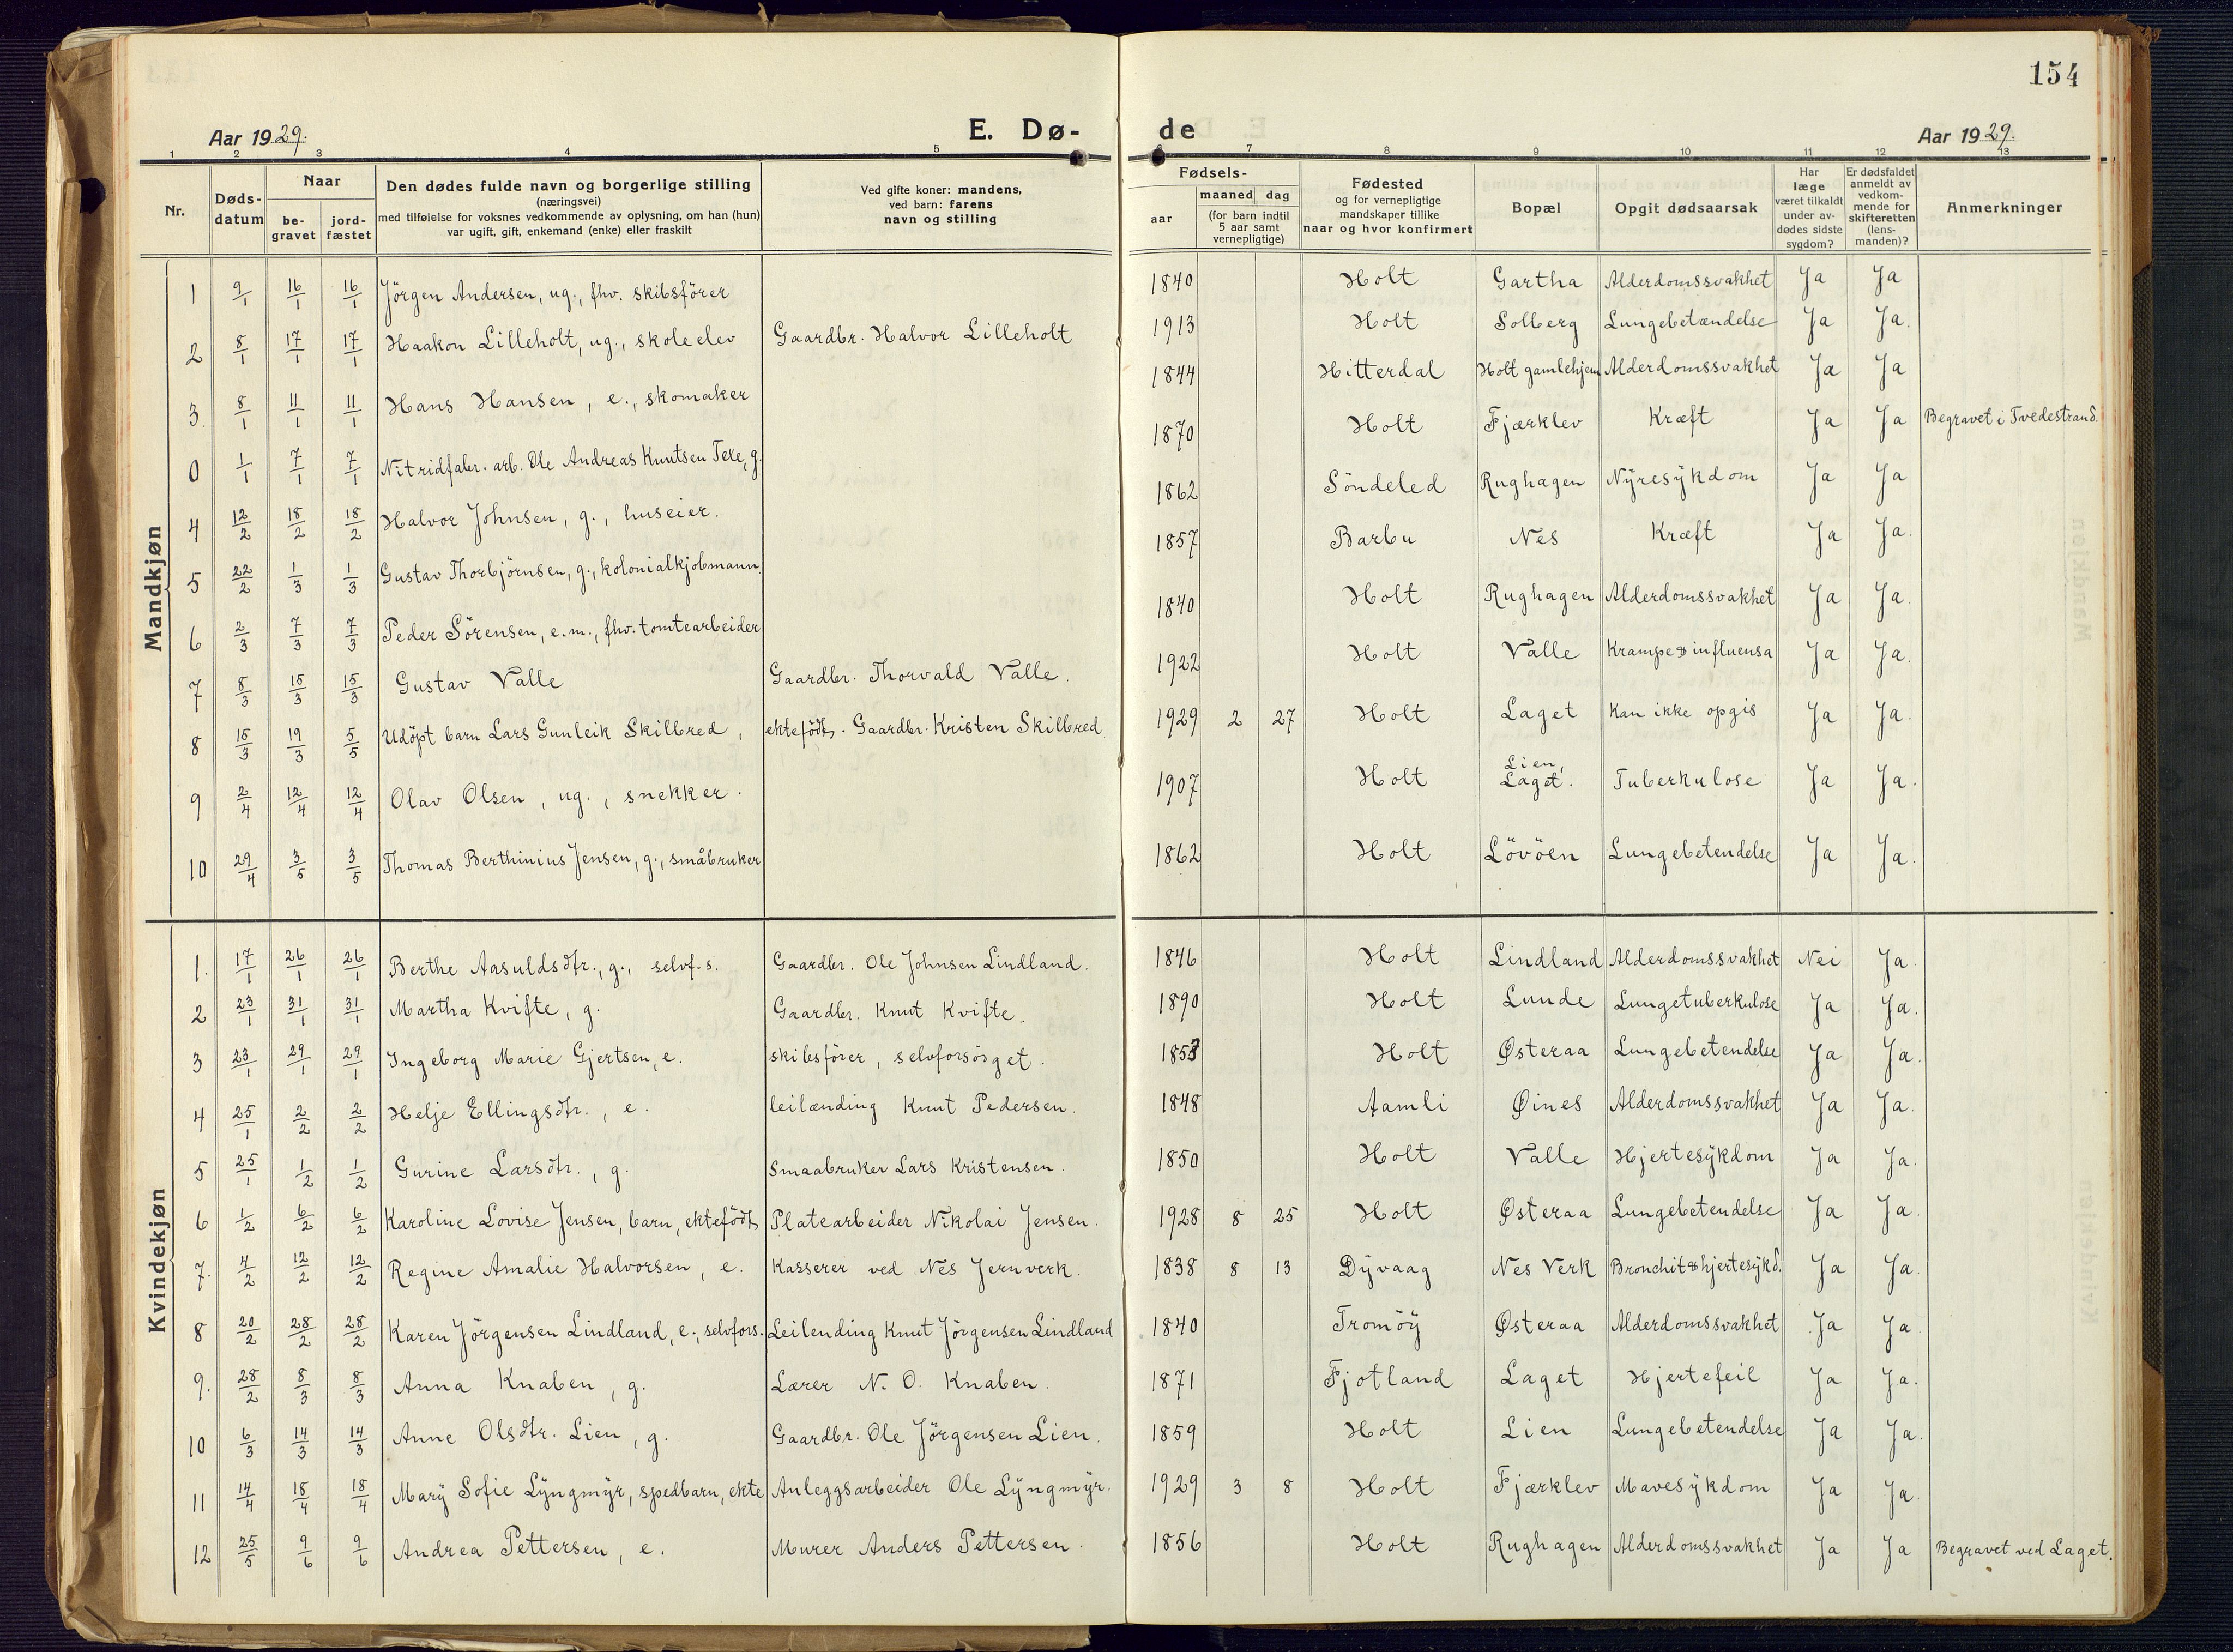 154
Aar 1929. E. Dø- de Aar 1929.
1 2 3 4 5 6 7 8 9 10 11 12 13
Nr. Døds-datum Naar be-gravet jord-fæstet Den dødes fulde navn og borgerlige stilling (næringsvei) med tilføielse for voksnes vedkommende av oplysning, om han (hun) var ugift, gift, enkemand (enke) eller fraskilt Ved gifte koner: mandens, ved barn: farens navn og stilling Fødsels- aar maaned dag (for barn indtil 5 aar samt vernepligtige) Fødested og for vernepligtige mandskaper tillike naar og hvor konfirmert Bopæl Opgit dødsaarsak Har læge været tilkaldt under av-dødes sidste sygdom? Er dødsfaldet anmeldt av vedkom-mende for skifteretten (lens-manden)? Anmerkninger
Mandkjøn
1 9/1 16/1 16/1 Jörgen Andersen, ug., fhv. skibsförer 1840 Holt Gartha Alderdomssvakhet Ja Ja
2 8/1 17/1 17/1 Haakon Lilleholt, ug., skoleelev Gaardbr. Halvor Lilleholt 1913 Holt Solberg Lungebetændelse Ja Ja.
3. 8/1 11/1 11/1 Hans Hansen, e., skomaker 1844 Hitterdal Holt gamlehjem Alderdomssvakhet Ja Ja
0 1/1 7/1 7/1 Nitridfabr. arb. Ole Andreas Knutsen Texe, g. 1870 Holt Fjærklev Kræft Ja Ja Begravet i Tvedestrand.
4 12/2 18/2 18/2 Halvor Johnsen, g., huseier. 1862 Söndeled Rughagen Nÿresÿkdom Ja Ja
5 22/2 1/3 1/3 Gustav Thorbjörnsen, g., kolonialkjöbmann. 1857 Barbu Nes Kræft Ja Ja.
6 2/3 7/3 7/3 Peder Sörensen, e.m., fhv. tomtearbeider 1840 Holt Rughagen Alderdomssvakhet Ja Ja.
7 8/3 15/3 15/3 Gustav Valle Gaardbr. Thorvald Valle. 1922 Holt Valle Krampe & influensa Ja Ja.
8 15/3 19/3 5/5 Udöpt barn Lars Gunleik Skilbred, ektefödt. Gaardbr. Kristen Skilbred. 1929 2 27 Holt Laget Kan ikke opgis Ja Ja.
9 2/4 12/4 12/4 Olav Olsen, ug., snekker. 1907 Holt Lien, Laget. Tuberkulose Ja Ja.
10 29/4 3/5 3/5 Thomas Berthinius Jensen, g., småbruker 1862 Holt Lövöen Lungebetendelse Ja Ja.
Kvindekjøn
1. 17/1 26/1 26/1 Berthe Aasuldsdtr., g., selvf.s. Gaardbr. Ole Johnsen Lindland. 1846 Holt Lindland Alderdomssvakhet Nei Ja.
2 23/1 31/1 31/1 Martha Kvifte, g. Gaardbr. Knut Kvifte. 1890 Holt Lunde Lungetuberkulose Ja Ja.
3 23/1 29/1 29/1 Ingeborg Marie Gjertsen, e. skibsförer, selvforsörget. Holt Østeraa Lungebetendelse Ja Ja.
4 25/1 2/2 2/2 Helje Ellingsdtr., e. leilænding Knut Pedersen. 1848 Aamli Øines Alderdomssvakhet Ja Ja.
5 25/1 1/2 1/2 Gurine Larsdtr., g. Smaabruker Lars Kristensen. 1850 Holt Valle Hjertesÿkdom Ja Ja.
6 1/2 6/2 6/2 Karoline Lovise Jensen, barn, ektefödt Platearbeider Nikolai Jensen. 1928 8 25 Holt Østeraa Lungebetendelse Ja Ja.
7. 4/2 12/2 12/2 Regine Amalie Halvorsen, e. Kasserer ved Nes Jernverk. 1838 8 13 Dÿvaag Nes Verk Bronchit & hjertesÿkd. Ja Ja.
8 20/2 28/2 28/2 Karen Jörgensen Lindland, e., selvfors. Leilending Knut Jörgensen Lindland 1840 Tromöÿ Østeraa Alderdomssvakhet Ja Ja.
9. 28/2 8/3 8/3 Anna Knaben, g. Lærer N. O. Knaben. 1871 Fjotland Laget Hjertefeil Ja Ja.
10 6/3 14/3 14/3 Anne Olsdtr. Lien, g. Gaardbr. Ole Jörgensen Lien. 1859 Holt Lien Lungebetendelse Ja Ja.
11 14/4 18/4 18/4 Marÿ Sofie Lÿngmÿr, spedbarn, ekte Anleggsarbeider Ole Lÿngmÿr. 1929 3 8 Holt Fjærklev Mavesÿkdom Ja Ja.
12 25/5 9/6 9/6 Andrea Pettersen, e. Murer Anders Pettersen. 1856 Holt Rughagen Alderdomssvakhet Ja Ja Begravet ved Laget.